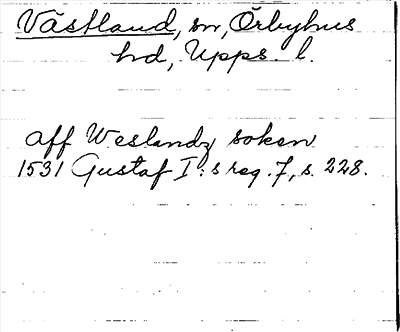 Västland, sn, Örbyhus
hd, Upps. l.
aff Weslandz soken
1531 Gustaf I:s reg. 7, s. 228.